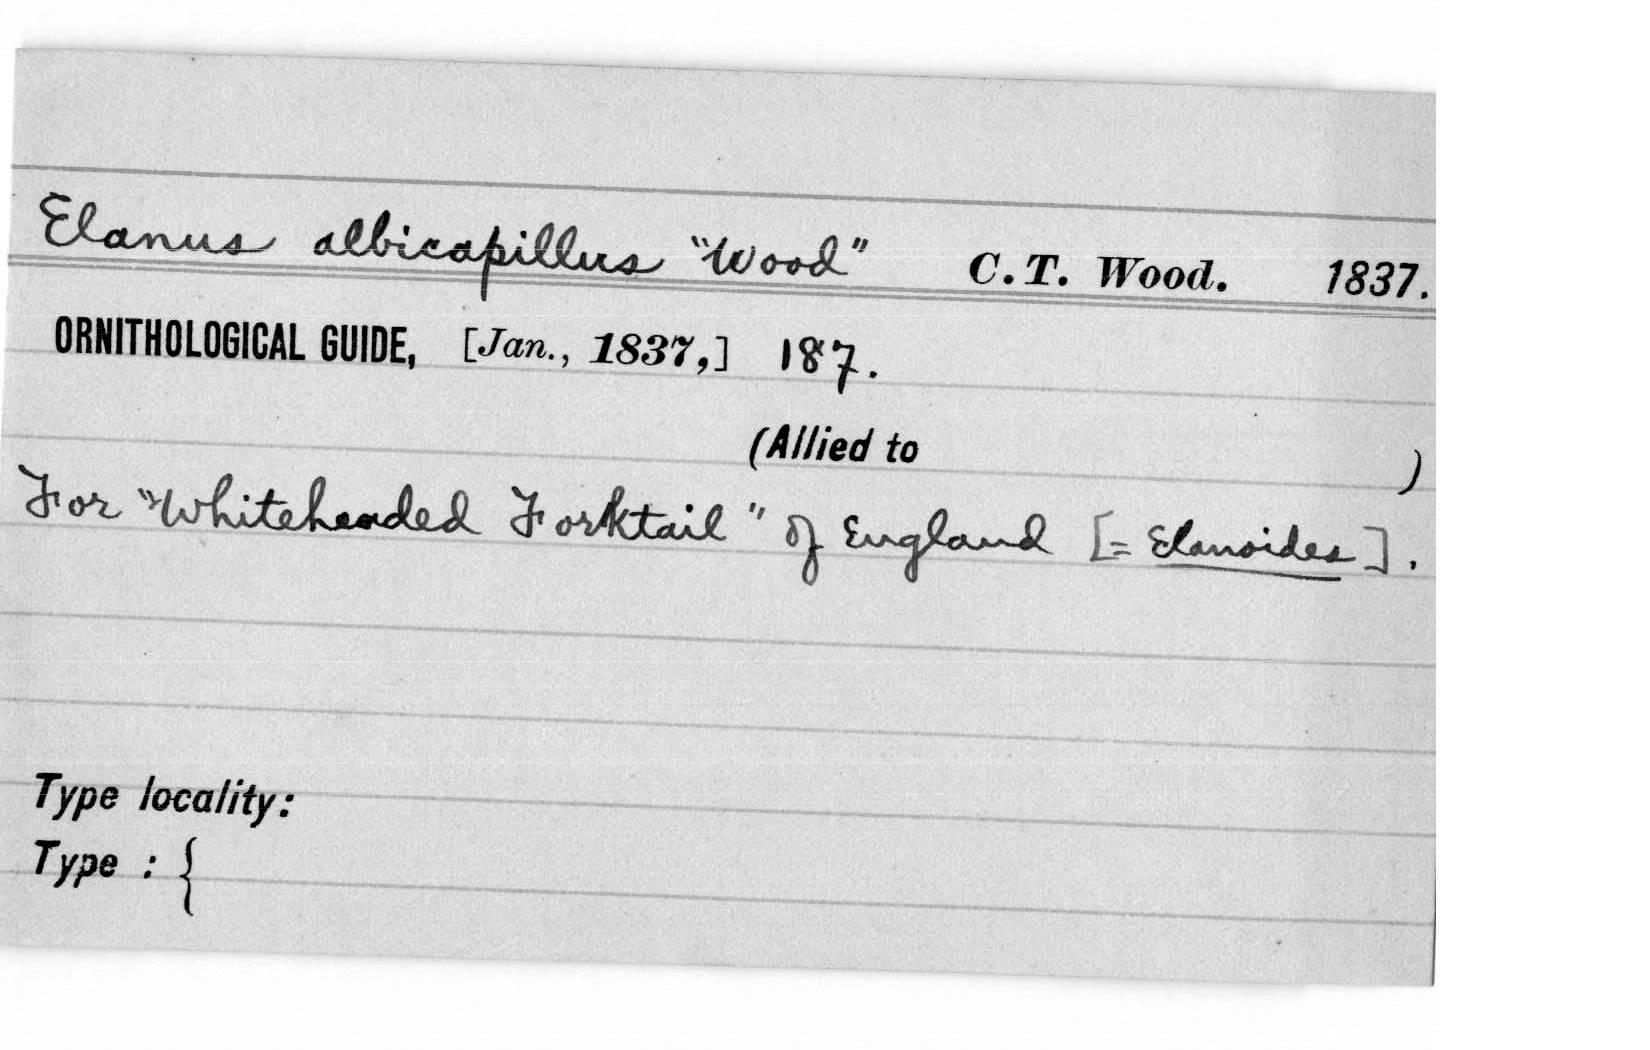 Elanus albicapillus "Wood" C.T. Wood. 1837.
ORNITHOLOGICAL GUIDE, [Jan., 1837,] 187.
(Allied to )
For "Whiteheaded Forktail" of England [= Elanoides].
Type locality:
Type : {